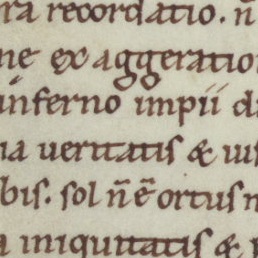 ra recordatio. n̄
ne exaggeratio
inferno impii d
na ueritatis & ius
bis. sol n̄ ē ortus n
a iniquitatis & p